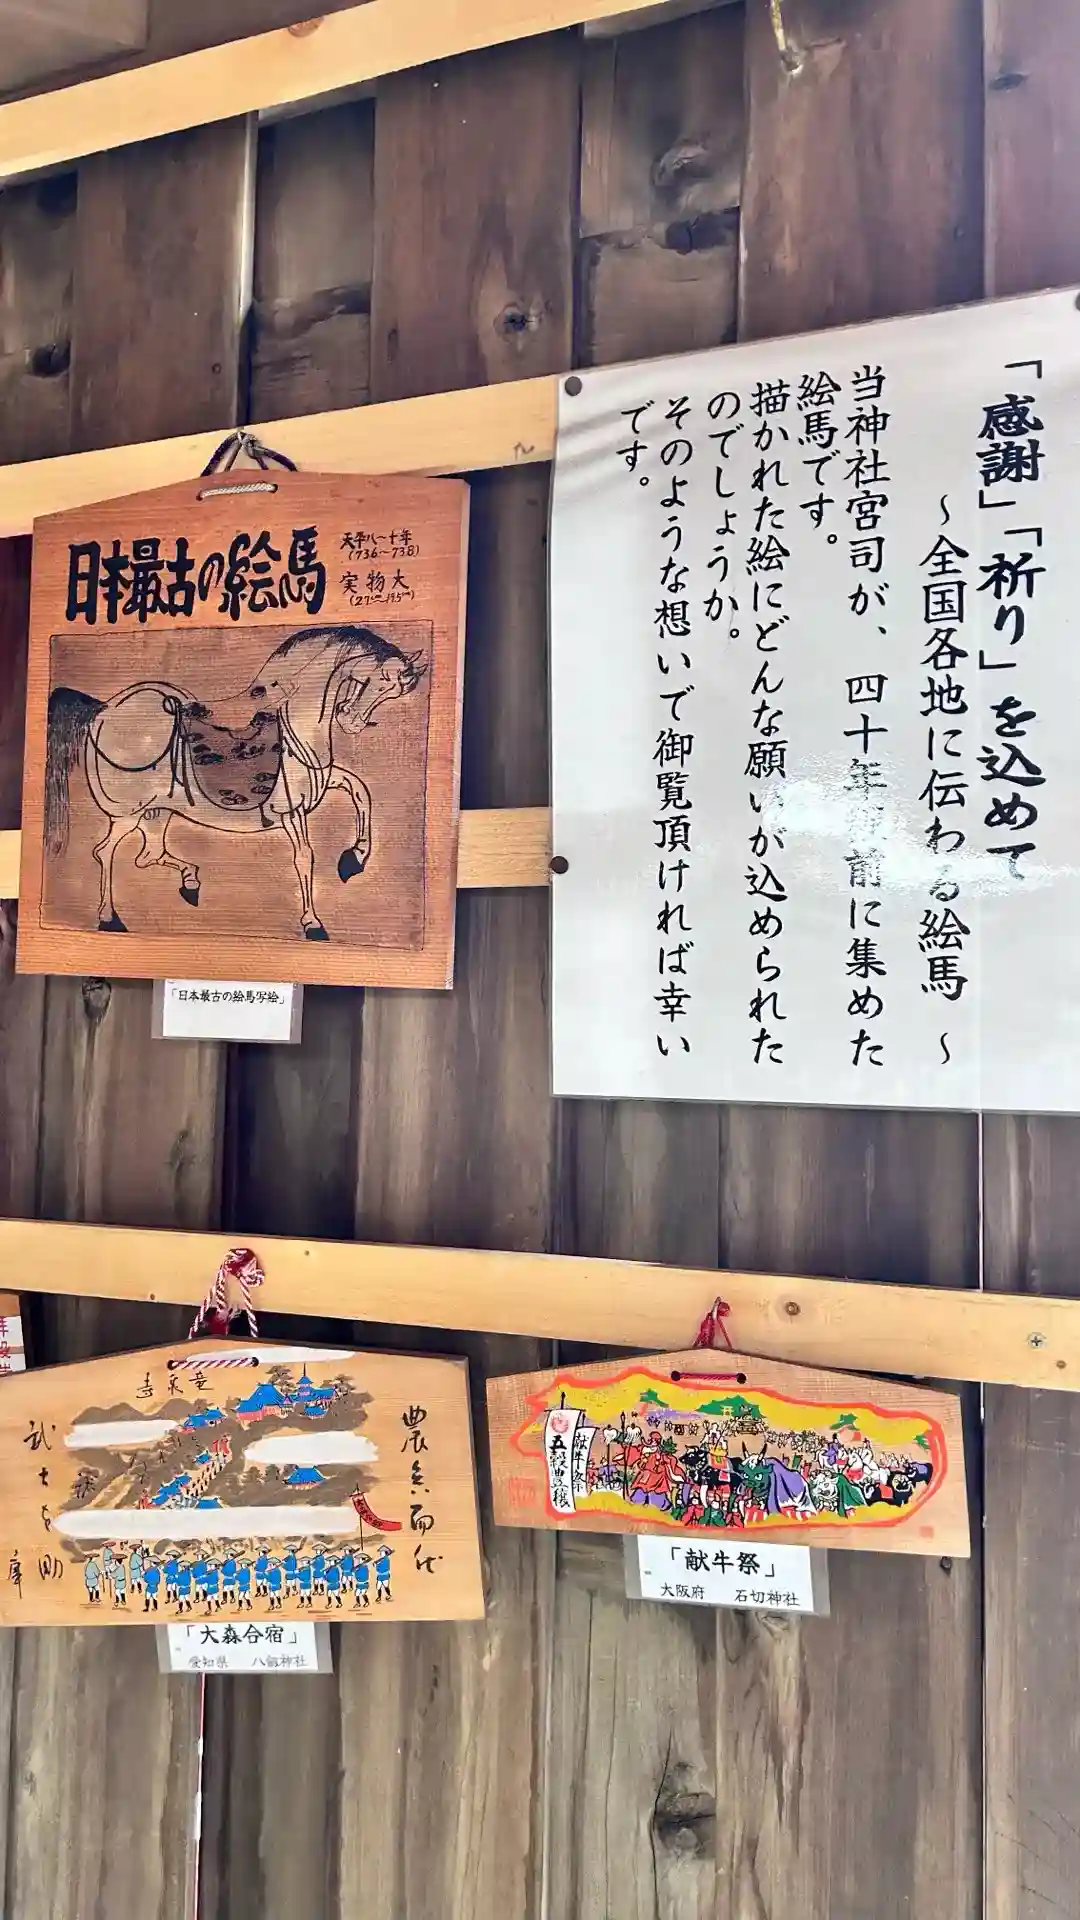 「感謝」「祈り」を込めて
～全国各地に伝わる絵馬～
当神社宮司が、四十年以前に集めた
絵馬です。
描かれた絵にどんな願いが込められた
のでしょうか。
そのような想いで御覧頂ければ幸い
です。
日本最古の絵馬
天平八～十年
(736～738)
実物大
(27cm～19.5cm)
「日本最古の絵馬写絵」
農兵而代
武士
献牛祭
五穀豊穣
「大森合宿」
愛知県 八劔神社
「献牛祭」
大阪府 石切神社